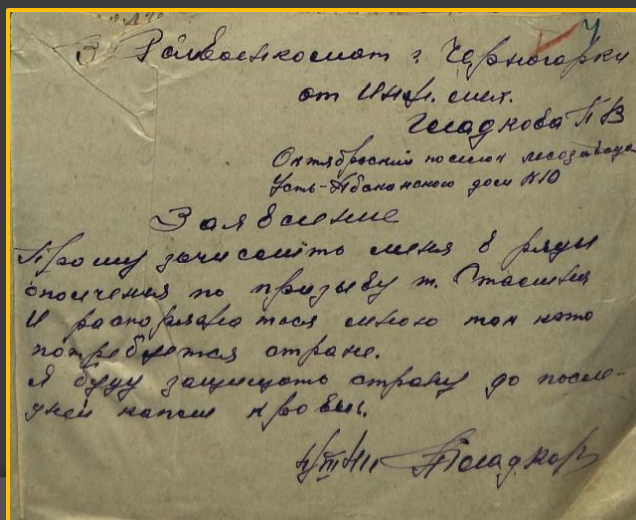 В Райвоенкомат г. Черногорки
от инж. мех.
Гладкова П В
Октябрьский поселок лесозавода
Усть-Абаканского дом №10
Заявление
Прошу зачислить меня в ряды
ополчения по призыву т. Сталина
И распоряжаться мною так как
потребуется стране.
Я буду защищать страну до после-
дней капли крови.
Гладков